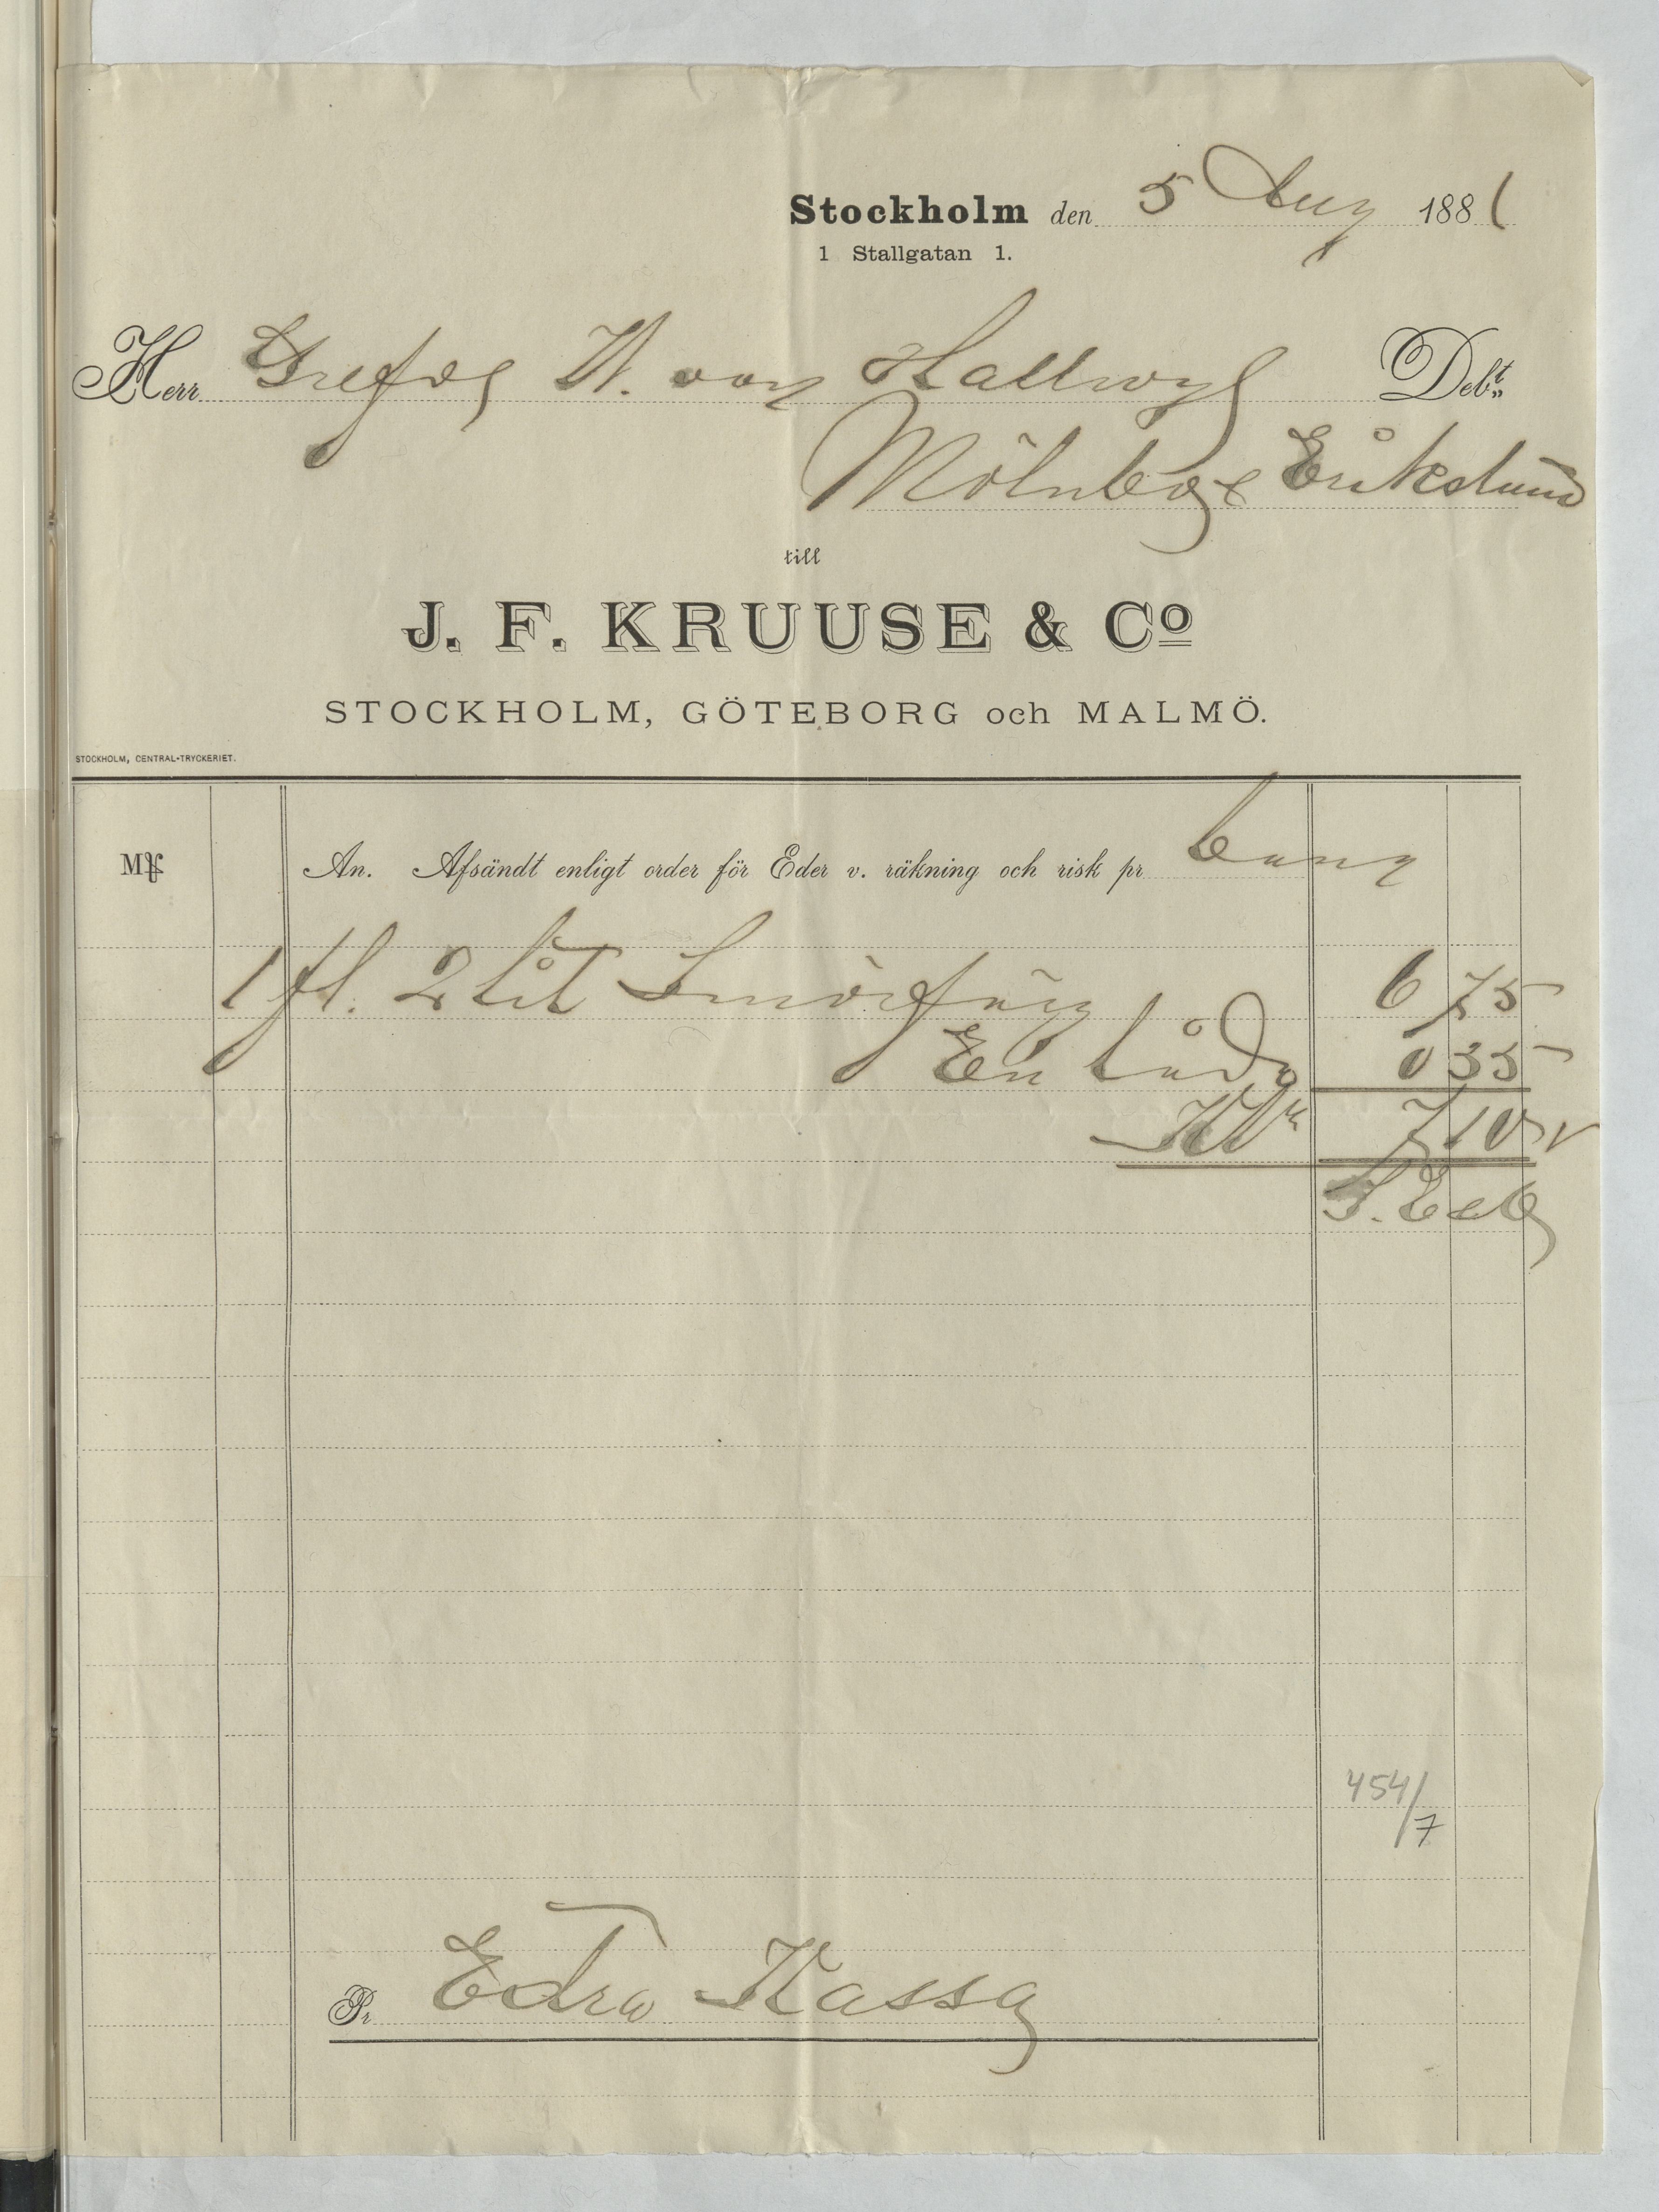 Stockholm den 5 Aug 1881
1 Stallgatan 1.
Herr Grefve W. von Hallwyl Debt
Mölnbo & Erikslund
till
J. F. KRUUSE & Co
STOCKHOLM, GÖTEBORG och MALMÖ.
STOCKHOLM, CENTRAL-TRYCKERIET.
An. Afsändt enligt order för Eder v. räkning och risk pr bang
1 fl. 2 lit Smörfärg 6 75
En låda 0 35
Kr 7 10
S. E. & O
454/7
Pr Extra Kassa